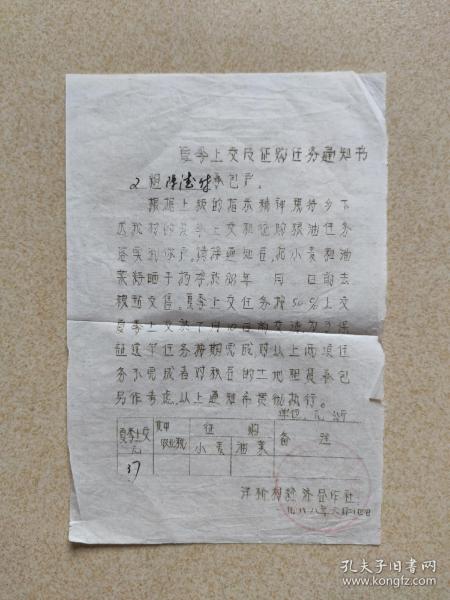 夏季上交及征购任务通知书
2组 承包户.
根据上级的指示精神果将乡下
达我村的夏季上交和征购粮油任务
落实到你户,请接通知后,把小麦和油
菜籽晒干扬净于88年 月 日前去
粮站交售.夏季上交任务按50%上交
夏季上交款 月 日前交清为了保
证这年任务按期完成,对以上两项任
务不完成者对秋后的土地 承包
另作考虑,以上通知希贯彻执行。
单位:元 斤
夏季上交 元
其中 农业税
征 购
小麦 油菜
备 注
37
洋 村经济合作社
一九八八年六月 日
孔夫子旧书网
www.kongfz.com